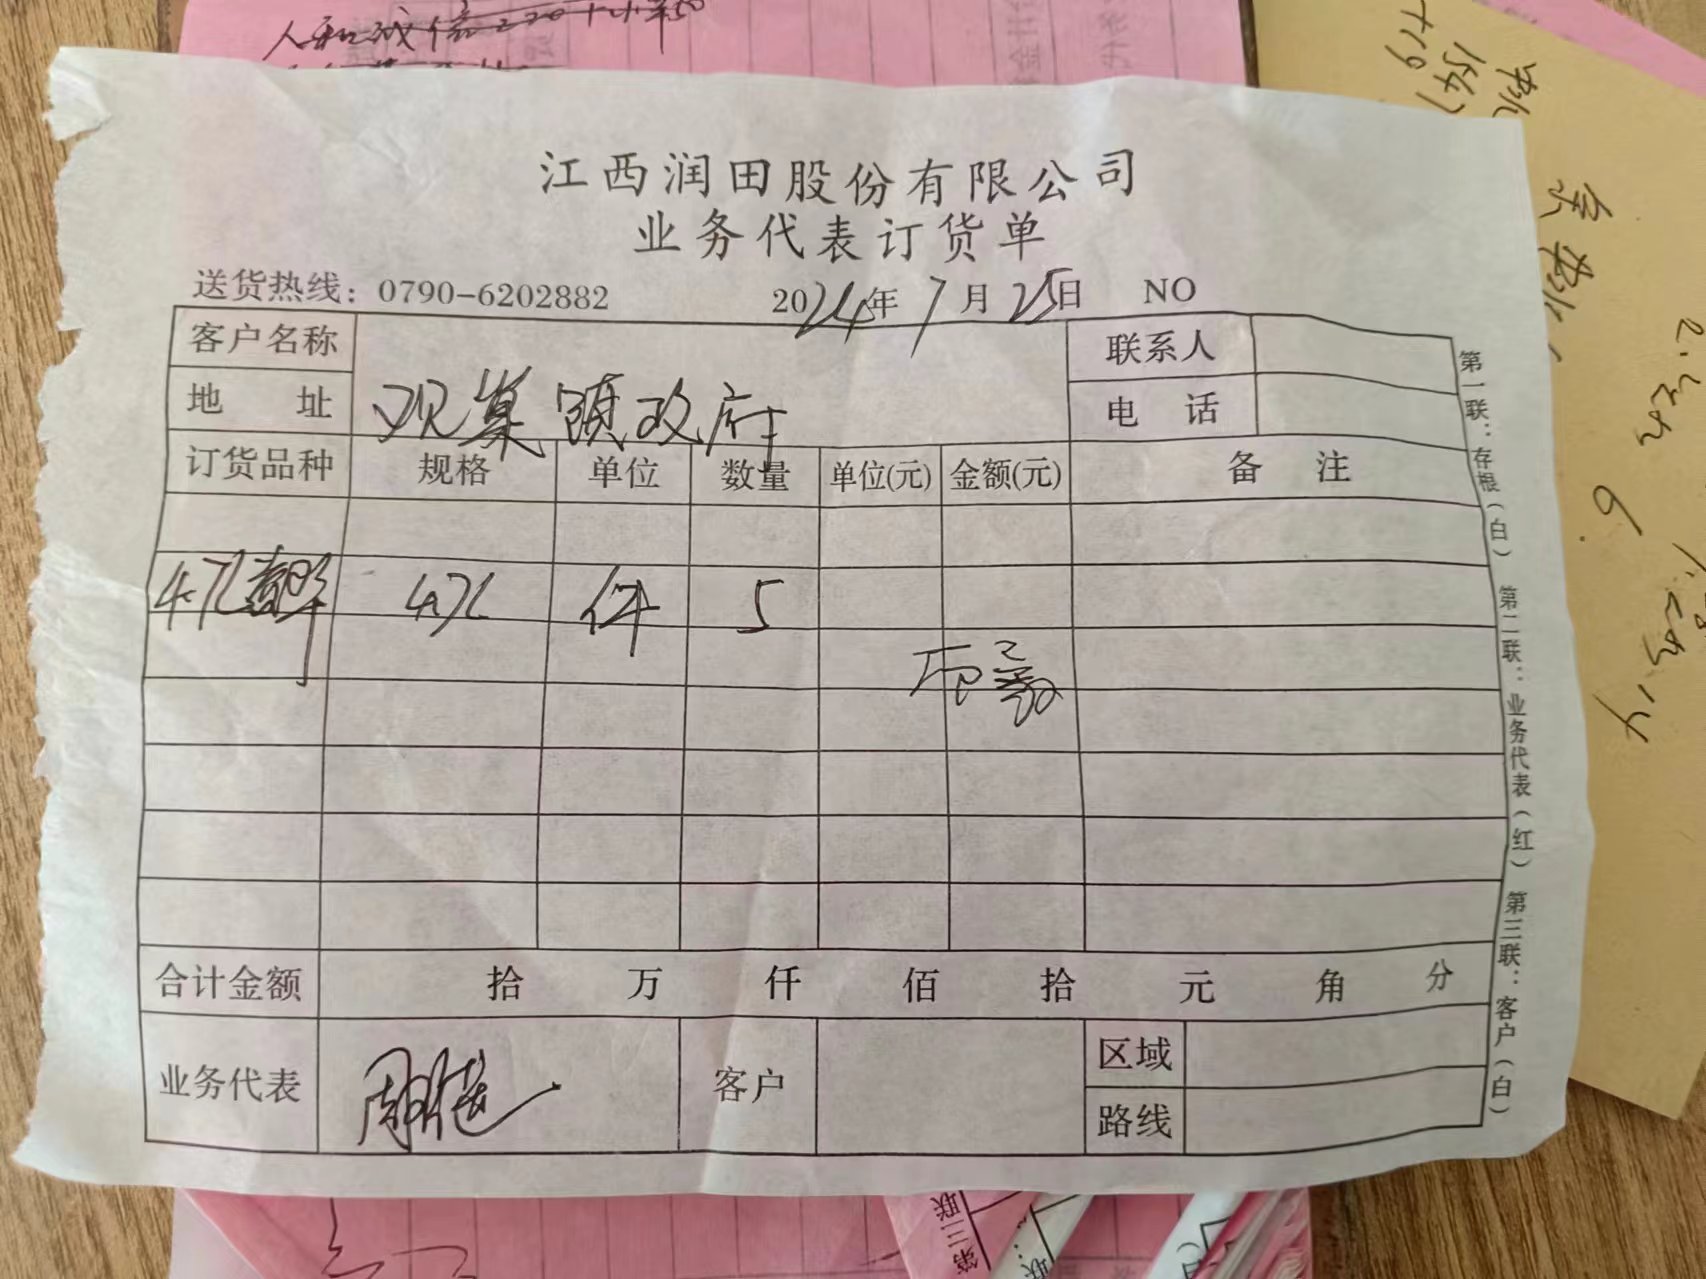 江西润田股份有限公司
业务代表订货单
送货热线：0790-6202882 2024年7月25日 NO
客户名称 联系人
地 址 观巢镇政府 电 话
订货品种 规格 单位 数量 单位(元) 金额(元) 备 注
4.7L 4.7L 件 5
合计金额 拾 万 仟 佰 拾 元 角 分
业务代表 客户 区域
路线
第一联：存根（白） 第二联：业务代表（红） 第三联：客户（白）